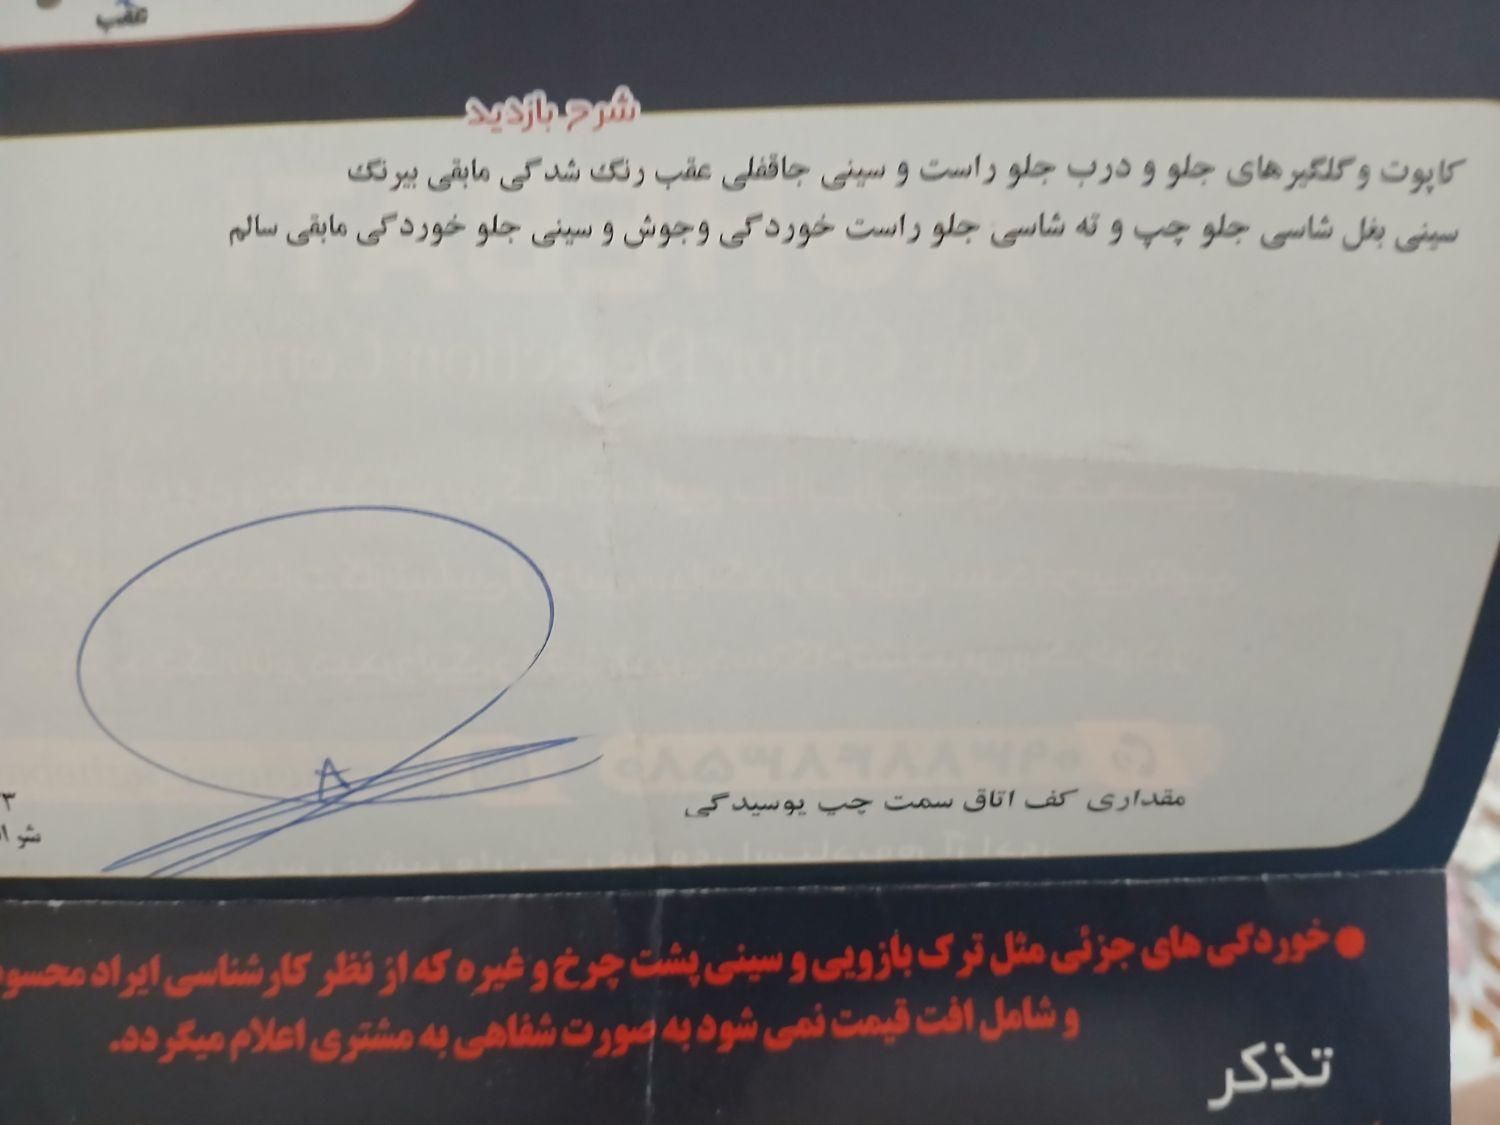 عقب
شرح بازدید
کاپوت و گلگیرهای جلو و درب جلو راست و سینی جاقفلی عقب رنگ شدگی مابقی بیرنگ
سینی بغل شاسی جلو چپ و ته شاسی جلو راست خوردگی وجوش و سینی جلو خوردگی مابقی سالم
مقداری کف اتاق سمت چپ پوسیدگی
● خوردگی های جزئی مثل ترک بازویی و سینی پشت چرخ و غیره که از نظر کارشناسی ایراد
و شامل افت قیمت نمی شود به صورت شفاهی به مشتری اعلام میگردد.
تذکر